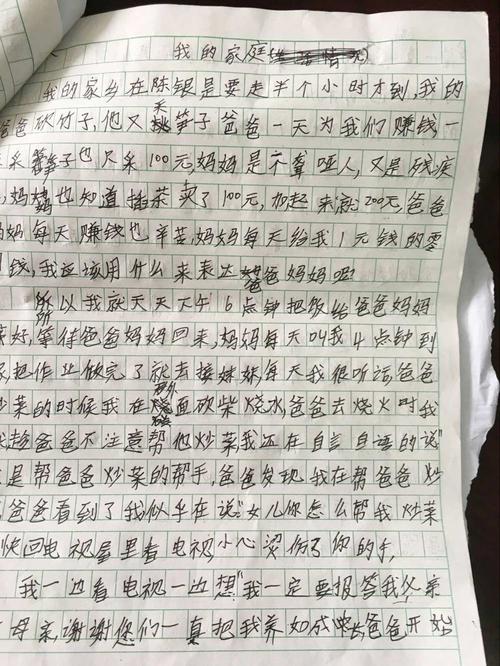 我的家庭
我的家乡在陈银是要走半个小时才到,我的
爸爸砍竹子,他又挑笋子爸爸一天为我们赚钱一
天采笋子也只采100元,妈妈是不聋哑人,又是残疾
妈妈也知道插茶卖了100元,加起来就200元,爸爸
妈妈每天赚钱也辛苦,妈妈每天给我1元钱的零
钱,我应该用什么来表达爸爸妈妈呢?
所以我就天天下午6点钟把饭给爸爸妈妈
菜好,等待爸爸妈妈回来,妈妈每天叫我4点钟到
家,把作业做完了就去接妹妹,每天我很听话,爸爸
炒菜的时候我在面砍柴烧水,爸爸去烧火时我
我趁爸爸不注意帮他炒菜我还在自言自语的说"
是帮爸爸炒菜的帮手,爸爸发现我在帮爸爸炒
爸爸看到了我似乎在说"女儿你怎么帮我炒菜
快回电视屋里看电视小心烫伤了你的手,
我一边看电视一边想"我一定要报答我父亲
母亲谢谢您们一真把我养如成长爸爸开始